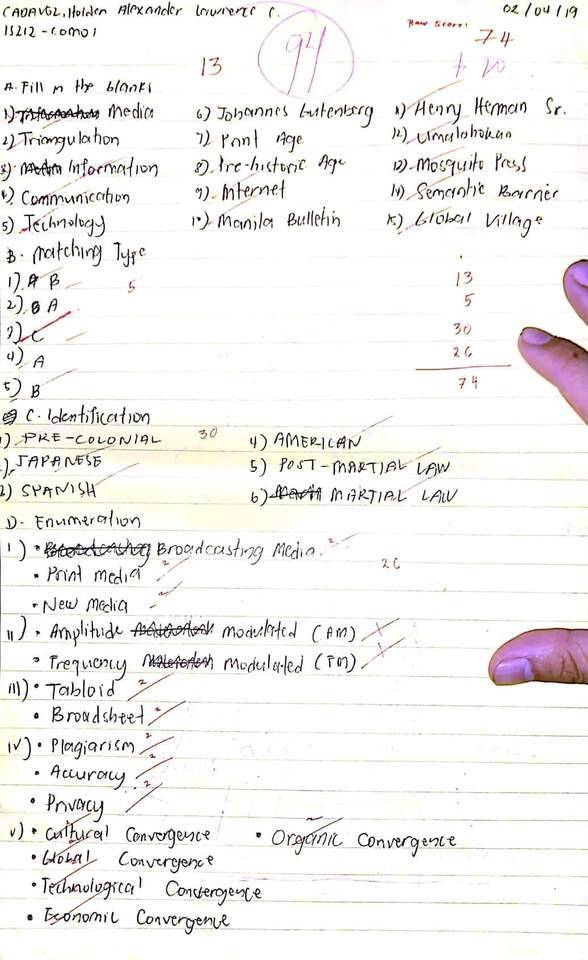 CADAVOZ, Holden Alexander Lawrence C. 02/04/19
IS212 - COM01 Raw Score: 74
13 94 + 20
A. Fill in the blanks
1) Media 6) Johannes Gutenberg 11) Henry Herman Sr.
2) Triangulation 7) Print Age 12) Umalohokan
3) Information 8) Pre-historic Age 13) Mosquito Press
4) Communication 9) Internet 14) Semantic Barrier
5) Technology 10) Manila Bulletin 15) Global Village
B. Matching Type
1) B 5 13
2) A 5
3) C 30
4) A 26
5) B 74
C. Identification
1) PRE-COLONIAL 30 4) AMERICAN
2) JAPANESE 5) POST-MARTIAL LAW
3) SPANISH 6) MARTIAL LAW
D. Enumeration
I) • Broadcasting Media 2
• Print media 2 26
• New Media 2
II) • Amplitude modulated (AM) 1
• Frequency Modulated (FM) 1
III) • Tabloid 2
• Broadsheet 2
IV) • Plagiarism 2
• Accuracy 2
• Privacy 2
V) • Cultural Convergence • Organic Convergence
• Global Convergence
• Technological Convergence
• Economic Convergence